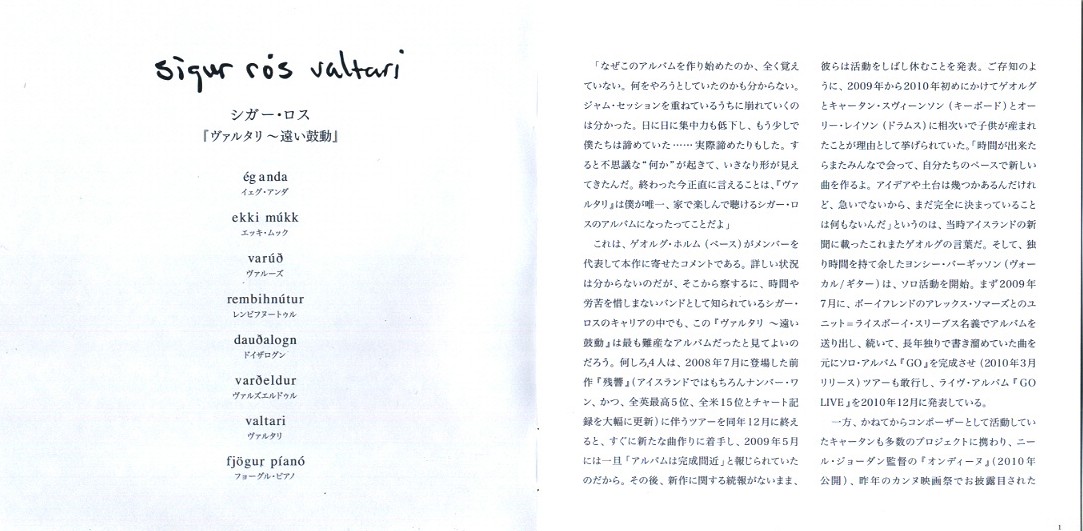 sigur rós valtari
シガー・ロス
『ヴァルタリ 〜遠い鼓動』
ég anda
イェグ・アンダ
ekki múkk
エッキ・ムック
varúð
ヴァルーズ
rembihnútur
レンビフヌートゥル
dauðalogn
ドイザログン
varðeldur
ヴァルズエルドゥル
valtari
ヴァルタリ
fjögur píanó
フョーグル・ピアノ
「なぜこのアルバムを作り始めたのか、全く覚え
ていない。何をやろうとしていたのかも分からない。
ジャム・セッションを重ねているうちに崩れていくの
は分かった。日に日に集中力も低下し、もう少しで
僕たちは諦めていた……実際諦めたりもした。す
ると不思議な“何か”が起きて、いきなり形が見え
てきたんだ。終わった今正直に言えることは、『ヴァ
ルタリ』は僕が唯一、家で楽しんで聴けるシガー・ロ
スのアルバムになったってことだよ」
これは、ゲオルグ・ホルム（ベース）がメンバーを
代表して本作に寄せたコメントである。詳しい状況
は分からないのだが、そこから察するに、時間や
労苦を惜しまないバンドとして知られているシガー・
ロスのキャリアの中でも、この『ヴァルタリ 〜遠い
鼓動』は最も難産なアルバムだったと見てよいの
だろう。何しろ4人は、2008年7月に登場した前
作『残響』（アイスランドではもちろんナンバー・ワ
ン、かつ、全英最高5位、全米15位とチャート記
録を大幅に更新）に伴うツアーを同年12月に終え
ると、すぐに新たな曲作りに着手し、2009年5月
には一旦「アルバムは完成間近」と報じられていた
のだから。その後、新作に関する続報がないまま、
彼らは活動をしばし休むことを発表。ご存知のよ
うに、2009年から2010年初めにかけてゲオルグ
とキャータン・スヴィーンソン（キーボード）とオー
リー・レイソン（ドラムス）に相次いで子供が産まれ
たことが理由として挙げられていた。「時間が出来た
らまたみんなで会って、自分たちのペースで新しい
曲を作るよ。アイデアや土台は幾つかあるんだけれ
ど、急いでないから、まだ完全に決まっていること
は何もないんだ」というのは、当時アイスランドの新
聞に載ったこれまたゲオルグの言葉だ。そして、独
り時間を持て余したヨンシー・バーギッソン（ヴォー
カル/ギター）は、ソロ活動を開始。まず2009年
7月に、ボーイフレンドのアレックス・ソマーズとのユ
ニット＝ライスボーイ・スリープス名義でアルバムを
送り出し、続いて、長年独りで書き溜めていた曲を
元にソロ・アルバム『GO』を完成させ（2010年3月
リリース）ツアーも敢行し、ライヴ・アルバム『GO
LIVE』を2010年12月に発表している。
一方、かねてからコンポーザーとして活動してい
たキャータンも多数のプロジェクトに携わり、ニー
ル・ジョーダン監督の『オンディーヌ』（2010年
公開）、昨年のカンヌ映画祭でお披露目された
1